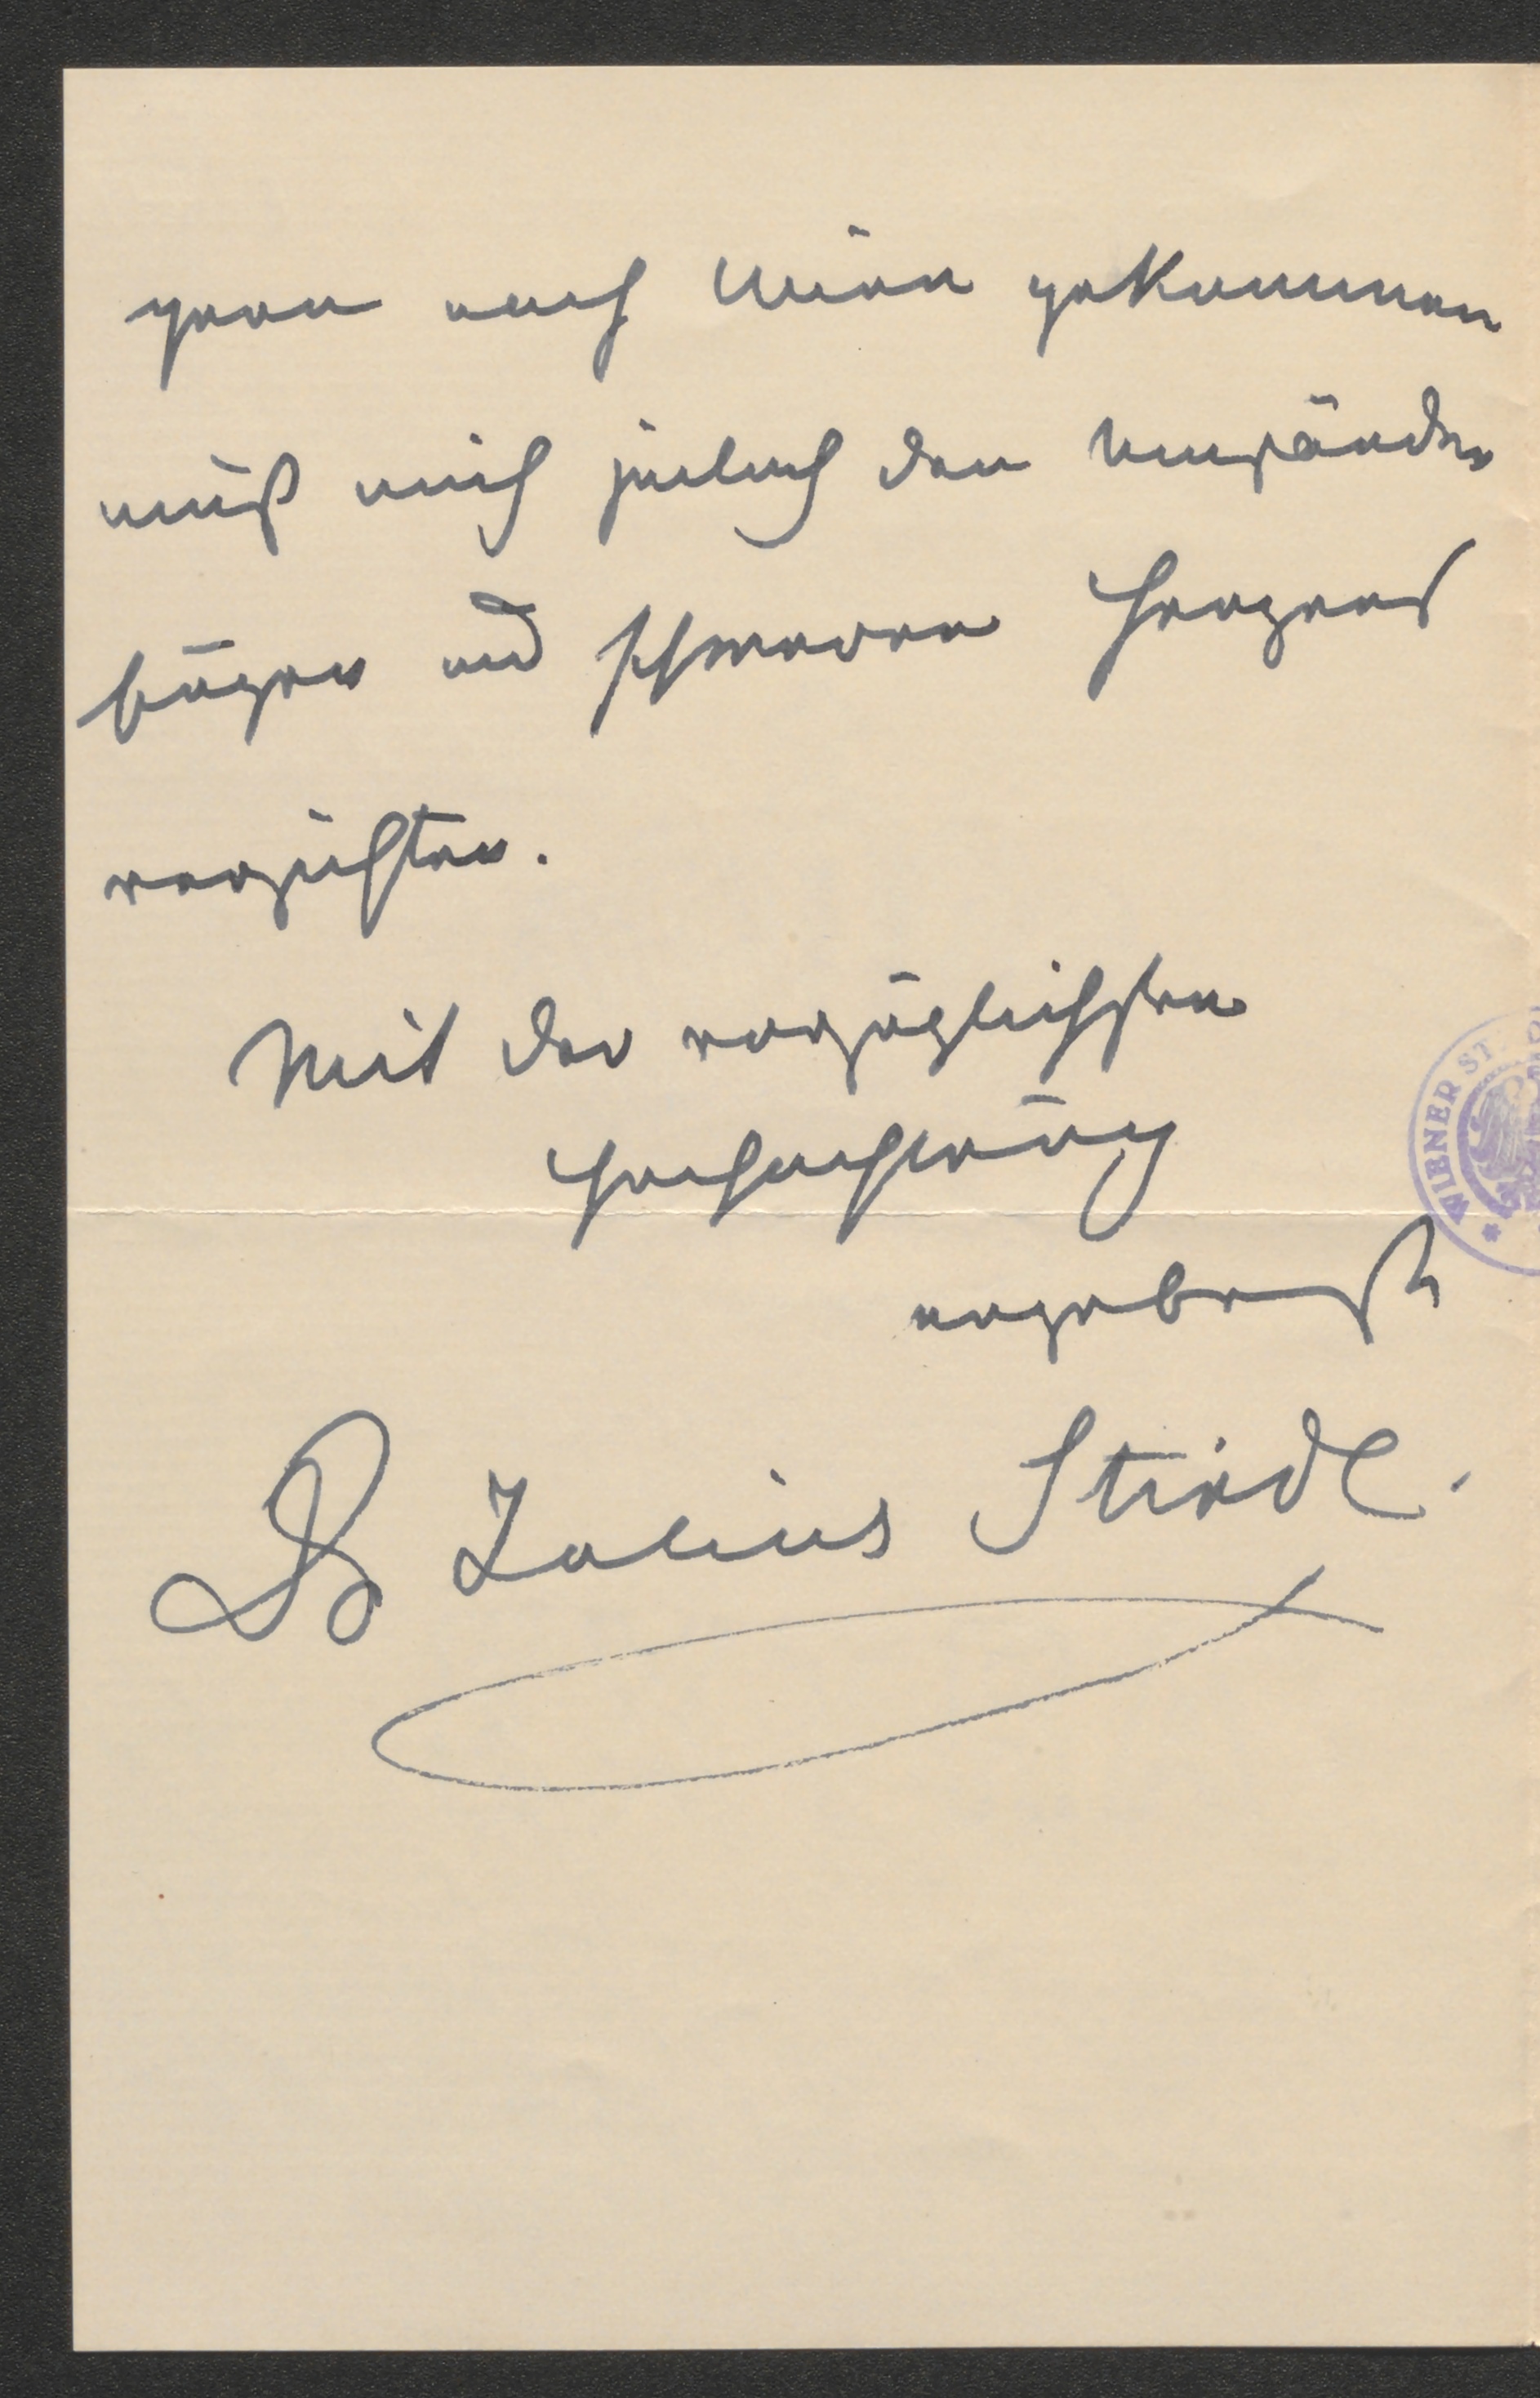 gern nach Wien gekommen
muß mich jedoch den Umständen
beugen und schweren Herzens
verzichten.
Mit der vorzüglichsten
Hochachtung
WIENER ST
ergebenst
Dr Julius Stinde.